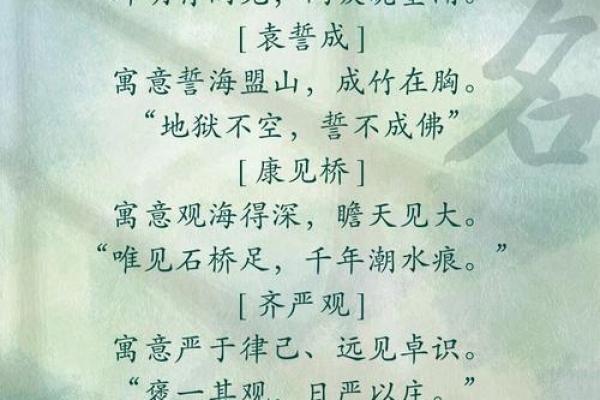 [袁誓成]
寓意誓海盟山，成竹在胸。
“地狱不空，誓不成佛”
[康见桥]
寓意观海得深，瞻天见大。
“唯见石桥足，千年潮水痕。”
[齐严观]
寓意严于律己、远见卓识。
“褒一其观，日严以庄。”
名